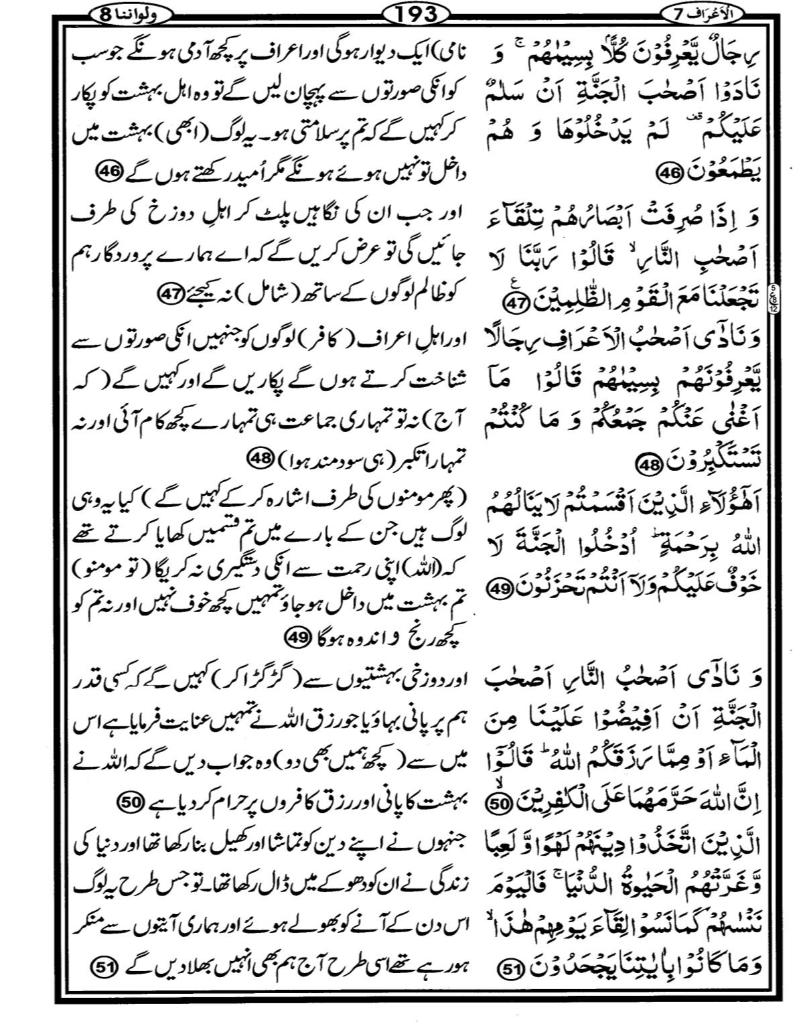 الاعراف 7
193
ولواننا 8
رِجَالٌ يَّعْرِفُوْنَ كُلًّۢا بِسِيْمٰىهُمْ ۚ وَ
نَادَوْا اَصْحٰبَ الْجَنَّةِ اَنْ سَلٰمٌ
عَلَيْكُمْ ۫ لَمْ يَدْخُلُوْهَا وَ هُمْ
يَطْمَعُوْنَ 46
وَ اِذَا صُرِفَتْ اَبْصَارُهُمْ تِلْقَآءَ
اَصْحٰبِ النَّارِ ۙ قَالُوْا رَبَّنَا لَا
تَجْعَلْنَا مَعَ الْقَوْمِ الظّٰلِمِيْنَ 47
وَ نَادٰۤى اَصْحٰبُ الْاَعْرَافِ رِجَالًا
يَّعْرِفُوْنَهُمْ بِسِيْمٰىهُمْ قَالُوْا مَاۤ
اَغْنٰى عَنْكُمْ جَمْعُكُمْ وَ مَا كُنْتُمْ
تَسْتَكْبِرُوْنَ 48
اَهٰۤؤُلَآءِ الَّذِيْنَ اَقْسَمْتُمْ لَا يَنَالُهُمُ
اللّٰهُ بِرَحْمَةٍ ؕ اُدْخُلُوا الْجَنَّةَ لَا
خَوْفٌ عَلَيْكُمْ وَلَاۤ اَنْتُمْ تَحْزَنُوْنَ 49
وَ نَادٰۤى اَصْحٰبُ النَّارِ اَصْحٰبَ
الْجَنَّةِ اَنْ اَفِيْضُوْا عَلَيْنَا مِنَ
الْمَآءِ اَوْ مِمَّا رَزَقَكُمُ اللّٰهُ ؕ قَالُوْۤا
اِنَّ اللّٰهَ حَرَّمَهُمَا عَلَى الْكٰفِرِيْنَ ۙ 50
الَّذِيْنَ اتَّخَذُوْا دِيْنَهُمْ لَهْوًا وَّ لَعِبًا
وَّ غَرَّتْهُمُ الْحَيٰوةُ الدُّنْيَا ۚ فَالْيَوْمَ
نَنْسٰىهُمْ كَمَا نَسُوْا لِقَآءَ يَوْمِهِمْ هٰذَا ۙ
وَمَا كَانُوْا بِاٰيٰتِنَا يَجْحَدُوْنَ 51
نامی) ایک دیوار ہوگی اور اعراف پر کچھ آدمی ہونگے جو سب
کو انکی صورتوں سے پہچان لیں گے تو وہ اہل بہشت کو پکار
کر کہیں گے کہ تم پر سلامتی ہو۔ یہ لوگ (ابھی) بہشت میں
داخل تو نہیں ہوئے ہونگے مگر اُمید رکھتے ہوں گے 46
اور جب ان کی نگاہیں پلٹ کر اہلِ دوزخ کی طرف
جائیں گی تو عرض کریں گے کہ اے ہمارے پروردگار ہم
کو ظالم لوگوں کے ساتھ (شامل) نہ کیجئے 47
اور اہلِ اعراف (کافر) لوگوں کو جنہیں انکی صورتوں سے
شناخت کرتے ہوں گے پکاریں گے اور کہیں گے (کہ
آج) نہ تو تمہاری جماعت ہی تمہارے کچھ کام آئی اور نہ
تمہارا تکبر (ہی سود مند ہوا) 48
(پھر مومنوں کی طرف اشارہ کر کے کہیں گے) کیا یہ وہی
لوگ ہیں جن کے بارے میں تم قسمیں کھایا کرتے تھے
کہ (اللہ) اپنی رحمت سے انکی دستگیری نہ کریگا (تو مومنو)
تم بہشت میں داخل ہو جاؤ تمہیں کچھ خوف نہیں اور نہ تم کو
کچھ رنج و اندوہ ہوگا 49
اور دوزخی بہشتیوں سے (گڑگڑا کر) کہیں گے کہ کسی قدر
ہم پر پانی بہاؤ یا جو رزق اللہ نے تمہیں عنایت فرمایا ہے اس
میں سے (کچھ ہمیں بھی دو) وہ جواب دیں گے کہ اللہ نے
بہشت کا پانی اور رزق کافروں پر حرام کر دیا ہے 50
جنہوں نے اپنے دین کو تماشا اور کھیل بنا رکھا تھا اور دنیا کی
زندگی نے ان کو دھوکے میں ڈال رکھا تھا۔ تو جس طرح یہ لوگ
اس دن کے آنے کو بھولے ہوئے اور ہماری آیتوں سے منکر
ہو رہے تھے اسی طرح آج ہم بھی انہیں بھلا دیں گے 51